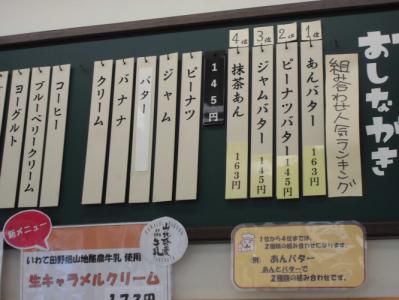 おしながき
組み合わせ人気ランキング
1位
あんバター
163円
2位
ピーナツバター
145円
3位
ジャムバター
145円
4位
抹茶あん
163円
145円
ピーナツ
ジャム
バター
バナナ
クリーム
コーヒー
ブルーベリークリーム
ヨーグルト
新メニュー
いわて田野畑山地酪農牛乳 使用
生キャラメルクリーム
173円
1位から4位までは、
2種類の組み合わせになります。
例
あんバター
あんとバターで
2種類の組み合わせです。